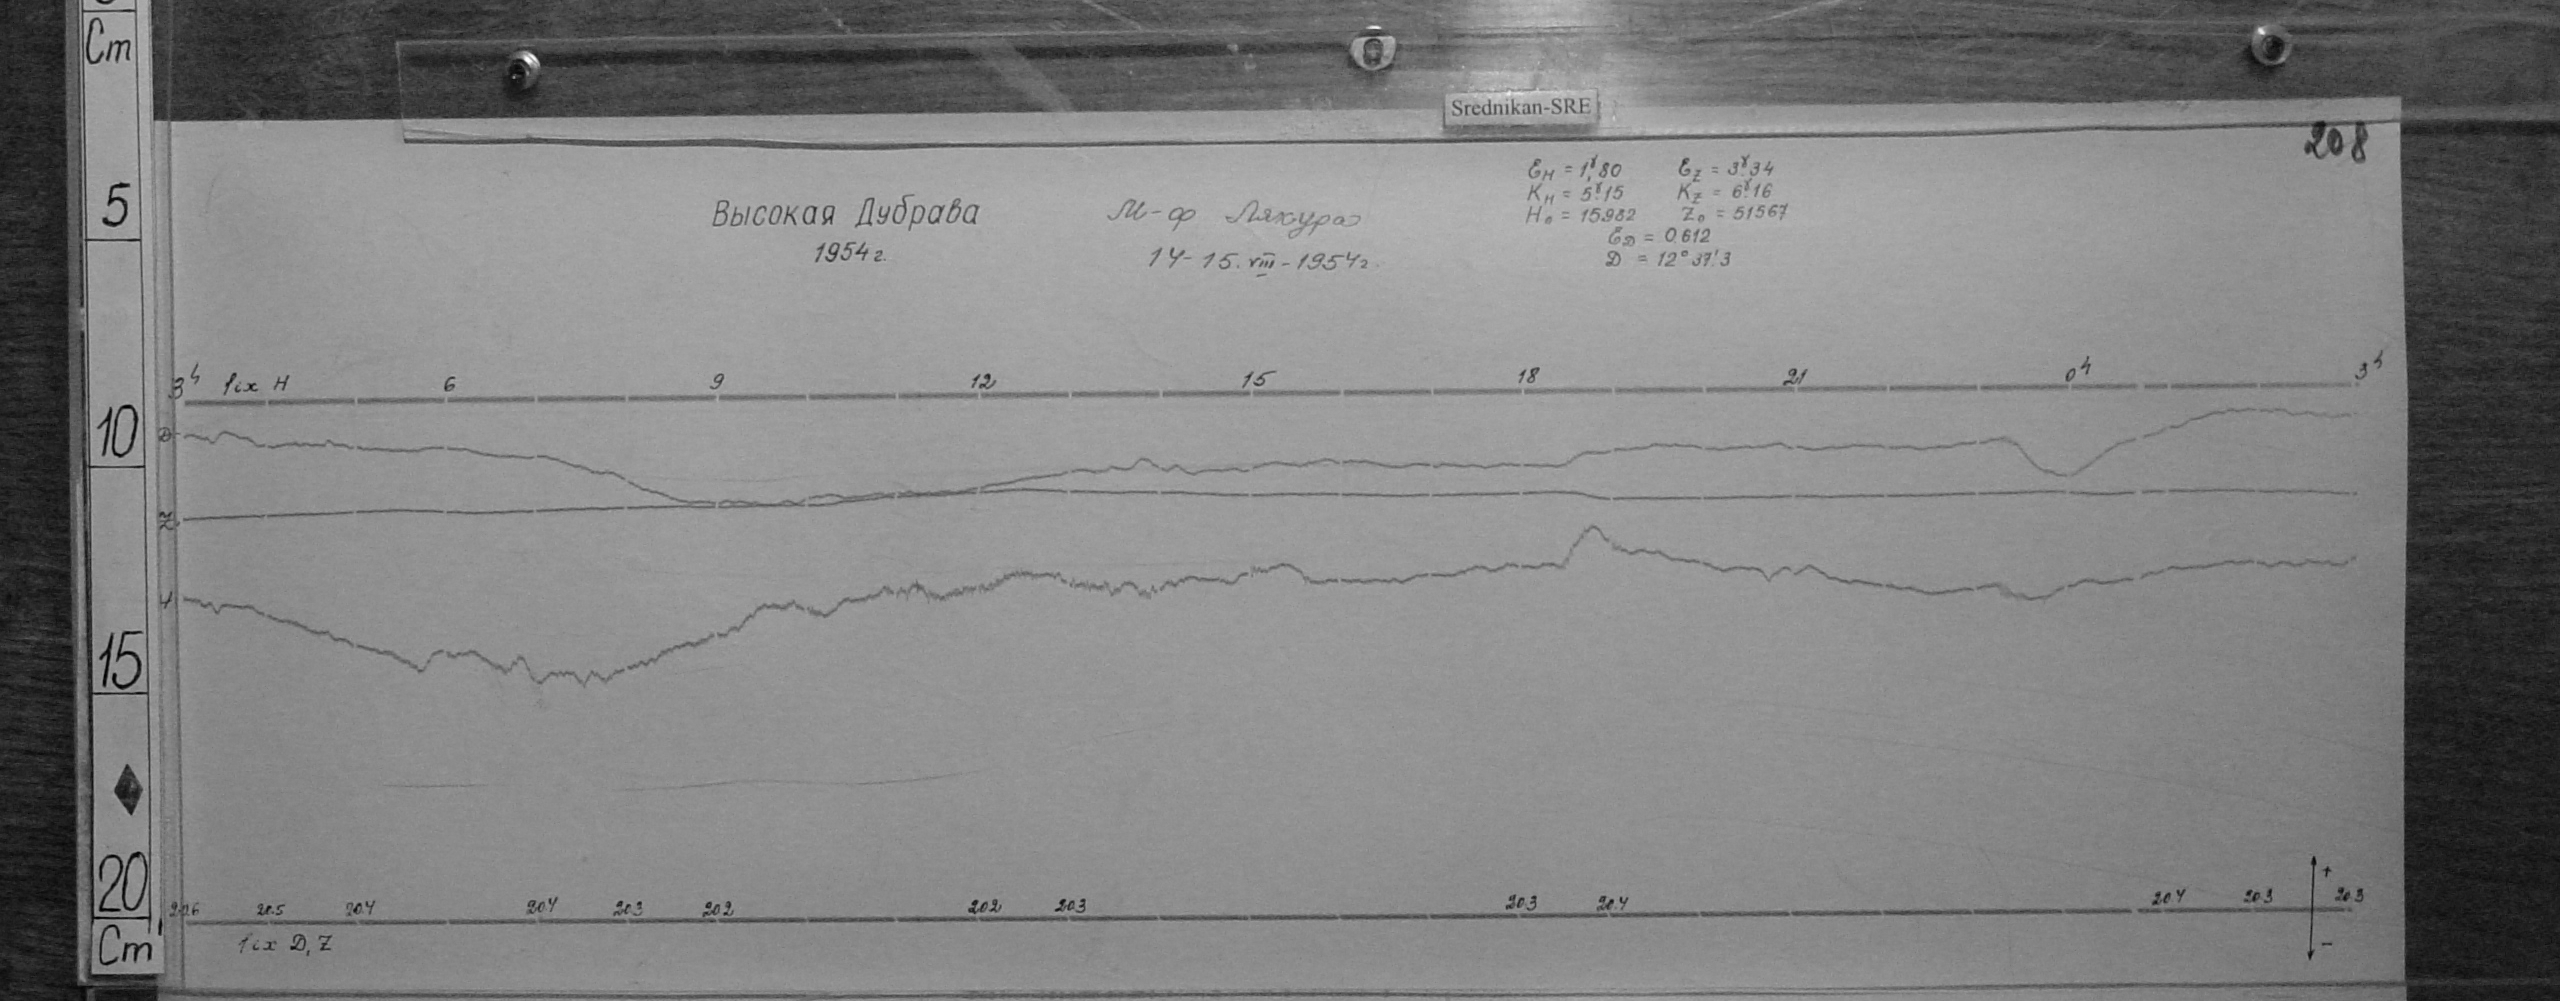 Cm
5
10
15
20
Cm
Srednikan-SRE
208
Высокая Дубрава
1954 г.
М-ф Ляхура
14-15.VIII-1954г.
Ɛн = 1,ˠ80 Ɛz = 3ˠ.34
Kн = 5ˠ.15 Kz = 6ˠ.16
H₀ = 15982 Z₀ = 51567
ƐD = 0.612
D = 12° 37!3
3ʰ fix H 6 9 12 15 18 21 0ʰ 3ʰ
D
Z
H
20.6 20.5 20.4 20.4 20.3 20.2 20.2 20.3 20.3 20.4 20.4 20.3 20.3
fix D, Z
+
−